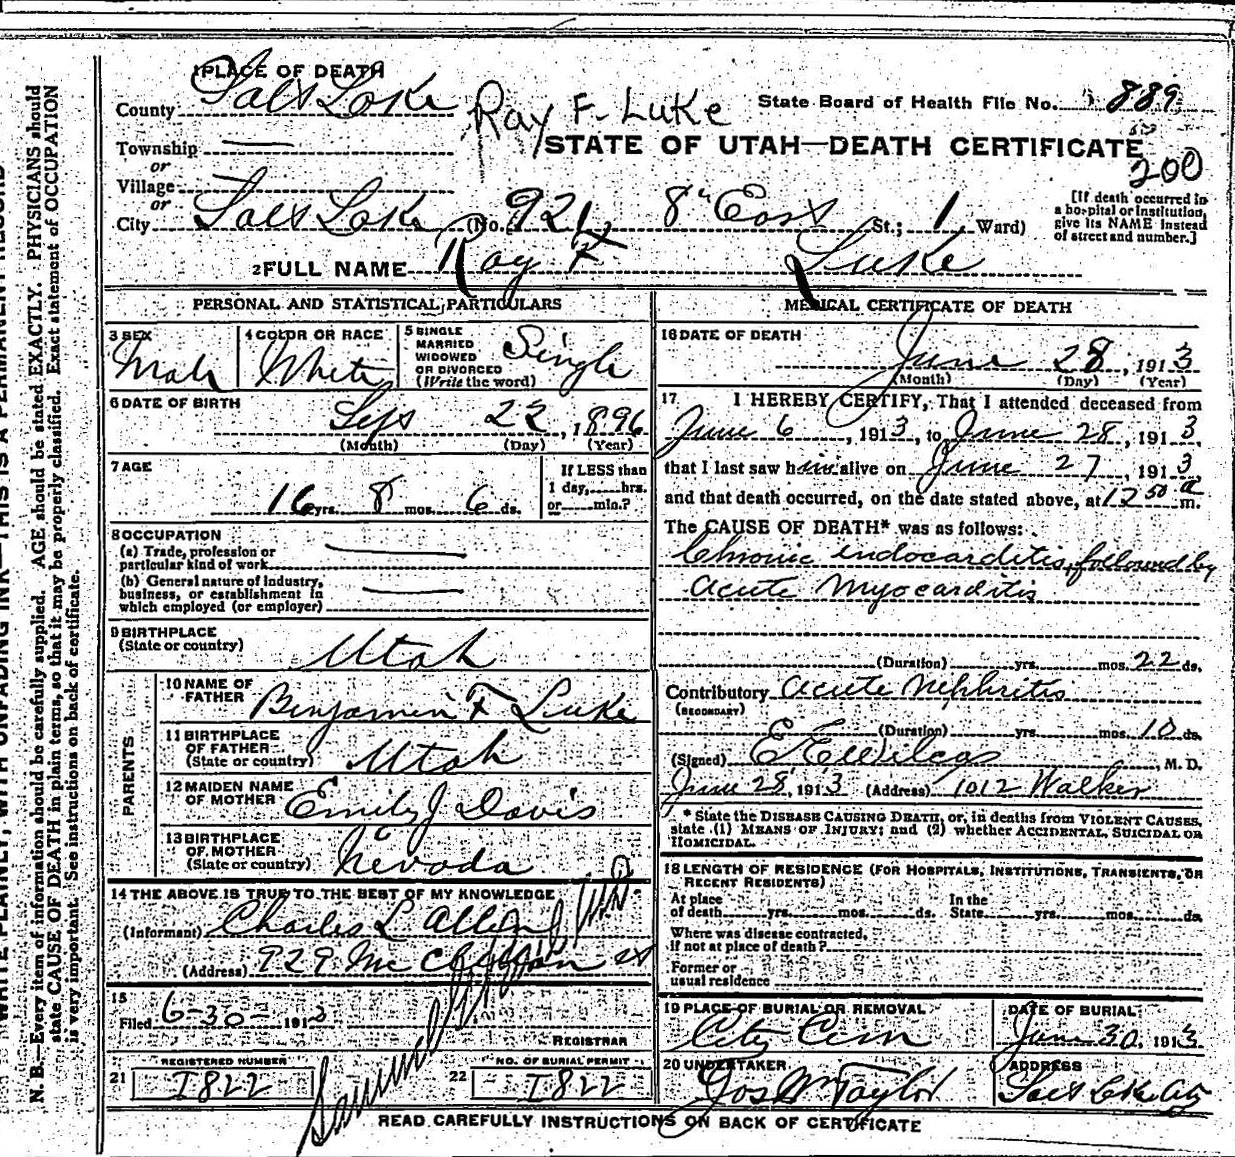 1 PLACE OF DEATH
County Salt Lake
Ray F. Luke
State Board of Health File No. 889
Township
or
Village
or
STATE OF UTAH—DEATH CERTIFICATE
200
City Salt Lake (No. 924 8th East St.; 1 Ward)
[If death occurred in
a hospital or institution,
give its NAME instead
of street and number.]
2 FULL NAME Ray F Luke
PERSONAL AND STATISTICAL PARTICULARS
3 SEX
Male
4 COLOR OR RACE
White
5 SINGLE
MARRIED
WIDOWED
OR DIVORCED
(Write the word)
Single
6 DATE OF BIRTH
Sept 22, 1896
(Month) (Day) (Year)
7 AGE
16 yrs. 8 mos. 6 ds.
If LESS than
1 day, hrs.
or min.?
8 OCCUPATION
(a) Trade, profession or
particular kind of work
(b) General nature of industry,
business, or establishment in
which employed (or employer)
9 BIRTHPLACE
(State or country)
Utah
PARENTS
10 NAME OF
FATHER
Benjamin F Luke
11 BIRTHPLACE
OF FATHER
(State or country)
Utah
12 MAIDEN NAME
OF MOTHER
Emily J Davis
13 BIRTHPLACE
OF MOTHER
(State or country)
Nevada
14 THE ABOVE IS TRUE TO THE BEST OF MY KNOWLEDGE
(Informant) Charles L Allen
(Address) 929 McClellan St
15
Filed 6-30- 1913
REGISTRAR
REGISTERED NUMBER
21 1822
NO. OF BURIAL PERMIT
22 1822
MEDICAL CERTIFICATE OF DEATH
16 DATE OF DEATH
June 28, 1913
(Month) (Day) (Year)
17 I HEREBY CERTIFY, That I attended deceased from
June 6, 1913, to June 28, 1913,
that I last saw him alive on June 27, 1913
and that death occurred, on the date stated above, at 12 50 a m.
The CAUSE OF DEATH* was as follows:
Chronic endocarditis, followed by
acute Myocarditis
(Duration) yrs. mos. 22 ds.
Contributory acute Nephritis
(SECONDARY)
(Duration) yrs. mos. 10 ds.
(Signed) E E Wilcox, M. D.
June 28, 1913 (Address) 1012 Walker
* State the DISEASE CAUSING DEATH, or, in deaths from VIOLENT CAUSES,
state (1) MEANS OF INJURY; and (2) whether ACCIDENTAL, SUICIDAL OR
HOMICIDAL.
18 LENGTH OF RESIDENCE (FOR HOSPITALS, INSTITUTIONS, TRANSIENTS, OR
RECENT RESIDENTS)
At place
of death yrs. mos. ds.
In the
State yrs. mos. ds.
Where was disease contracted,
if not at place of death?
Former or
usual residence
19 PLACE OF BURIAL OR REMOVAL
City Cem
DATE OF BURIAL
June 30, 1913
20 UNDERTAKER
Jos Wm Taylor
ADDRESS
Salt Lk City
READ CAREFULLY INSTRUCTIONS ON BACK OF CERTIFICATE
N. B.—Every item of information should be carefully supplied. AGE should be stated EXACTLY. PHYSICIANS should
state CAUSE OF DEATH in plain terms, so that it may be properly classified. Exact statement of OCCUPATION
is very important. See instructions on back of certificate.